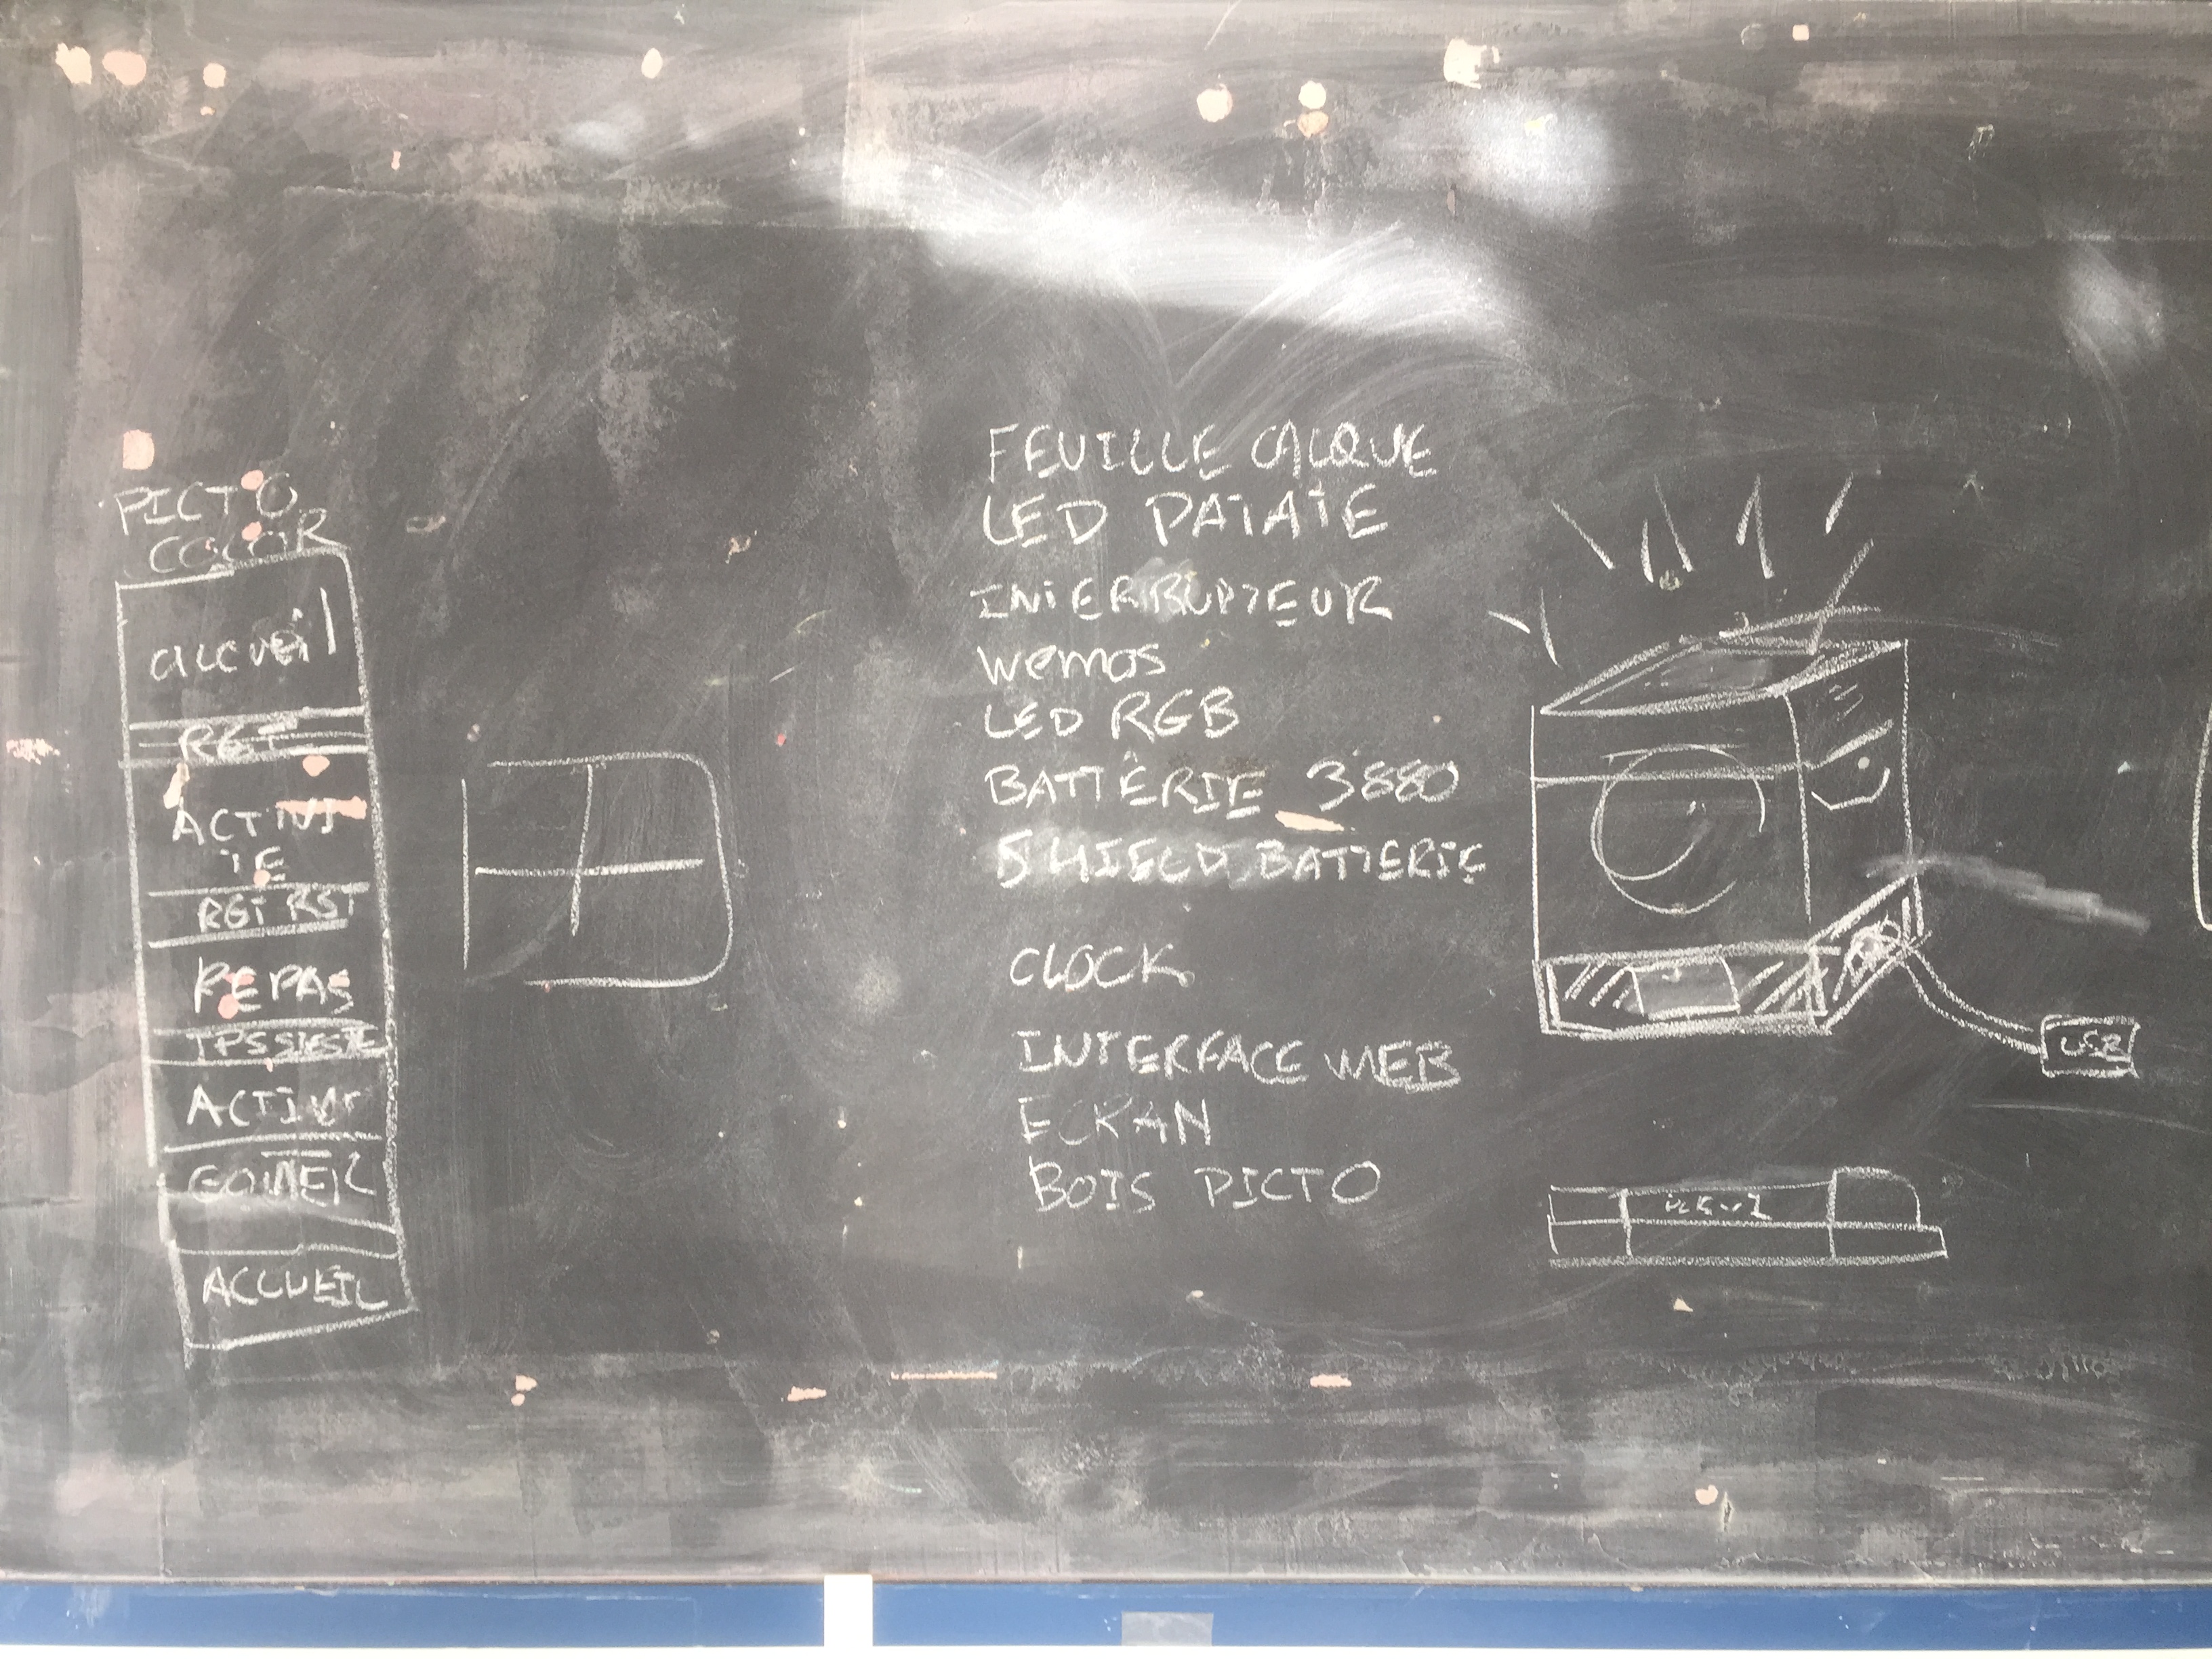 PICTO
COLOR
accueil
RGT
ACTIVI
TE
RGT RST
REPAS
TPS SIESTE
ACTIVI
GOUTER
ACCUEIL
FEUILLE CALQUE
LED PATATE
INTERRUPTEUR
wemos
LED RGB
BATTERIE 3880
SHIELD BATTERIE
CLOCK
INTERFACE WEB
ECRAN
BOIS PICTO
USB